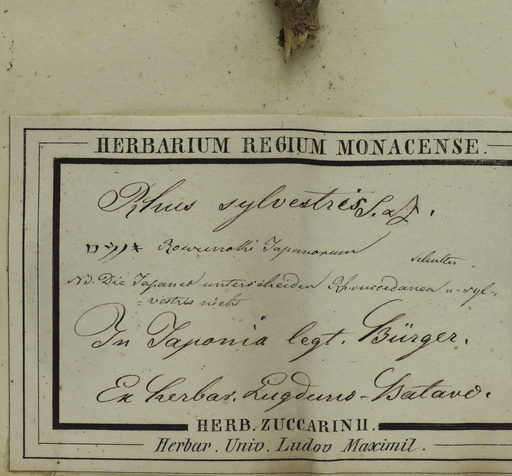 HERBARIUM REGIUM MONACENSE.
Rhus sylvestris S. a Z.
ロウノキ Rowunoki Japanorum Schultes.
NB. Die Japaner unterscheiden Rh. succedanea u. syl-
= vestris nicht
In Japonia legt. Bürger.
Ex herbar. Lugduno-Batavo.
HERB. ZUCCARINII.
Herbar. Univ. Ludov Maximil.